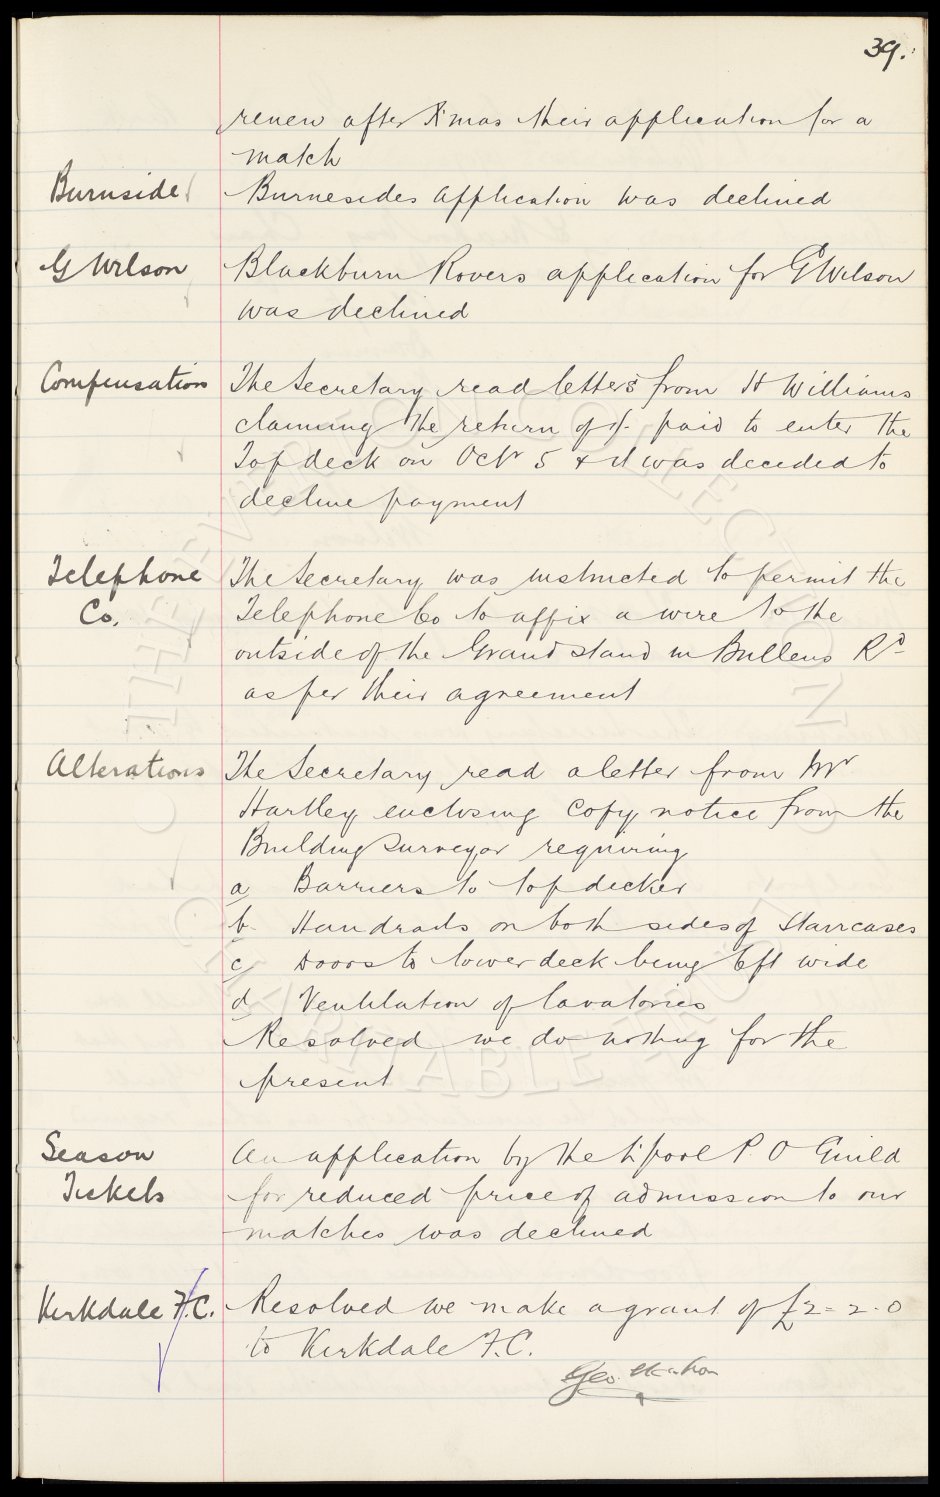 39.
renew after Xmas their application for a
match
Burnside
Burnesides application was declined
G Wilson
Blackburn Rovers application for G Wilson
was declined
Compensation
The Secretary read letters from H Williams
claiming the return of 1/- paid to enter the
Top deck on Octr 5 & it was decided to
decline payment
Telephone
Co.
The Secretary was instructed to permit the
Telephone Co to affix a wire to the
outside of the Grand stand in Bullens Rd
as per their agreement
Alterations
The Secretary read a letter from Mr
Hartley enclosing copy notice from the
Building Surveyor requiring
a Barriers to top decker
b- Handrails on both sides of Staircases
c Doors to lower deck being left wide
d Ventilation of lavatories
Resolved we do nothing for the
present
Season
Tickets
An application by the L'pool P. O Guild
for reduced price of admission to our
matches was declined
Kirkdale F.C.
Resolved we make a grant of £2=2-0
to Kirkdale F.C.
Geo. Mahon
© THE EVERTON COLLECTION
CHARITABLE TRUST